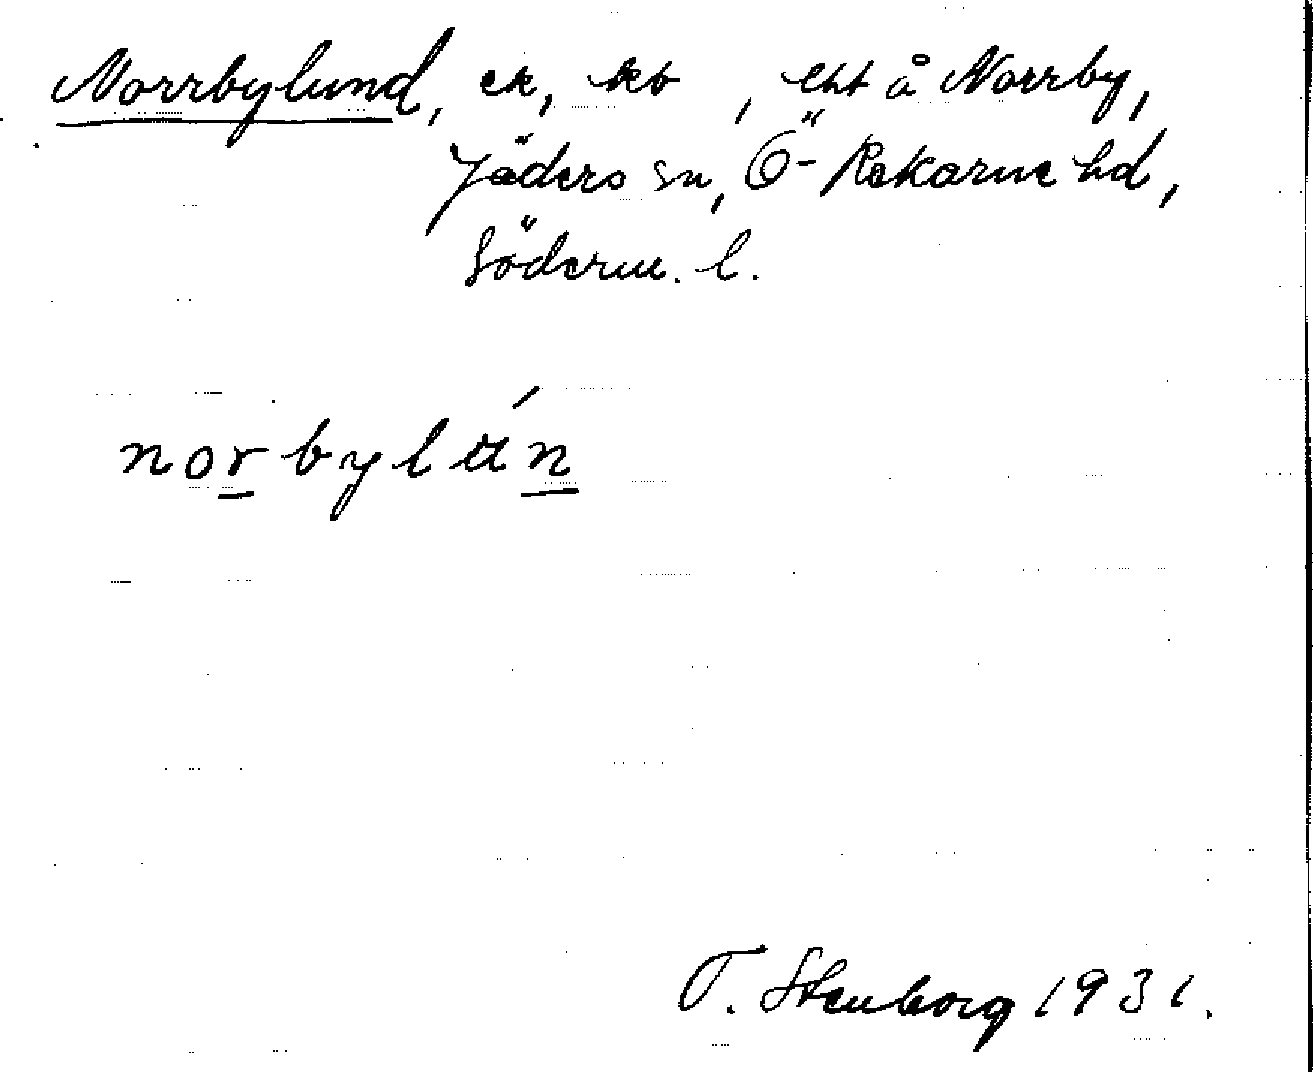 Norrbylund, ek, kb, lht å Norrby,
Jäders sn, Ö-Rekarne hd,
Söderm. l.
norbylún
T. Stenborg 1931.